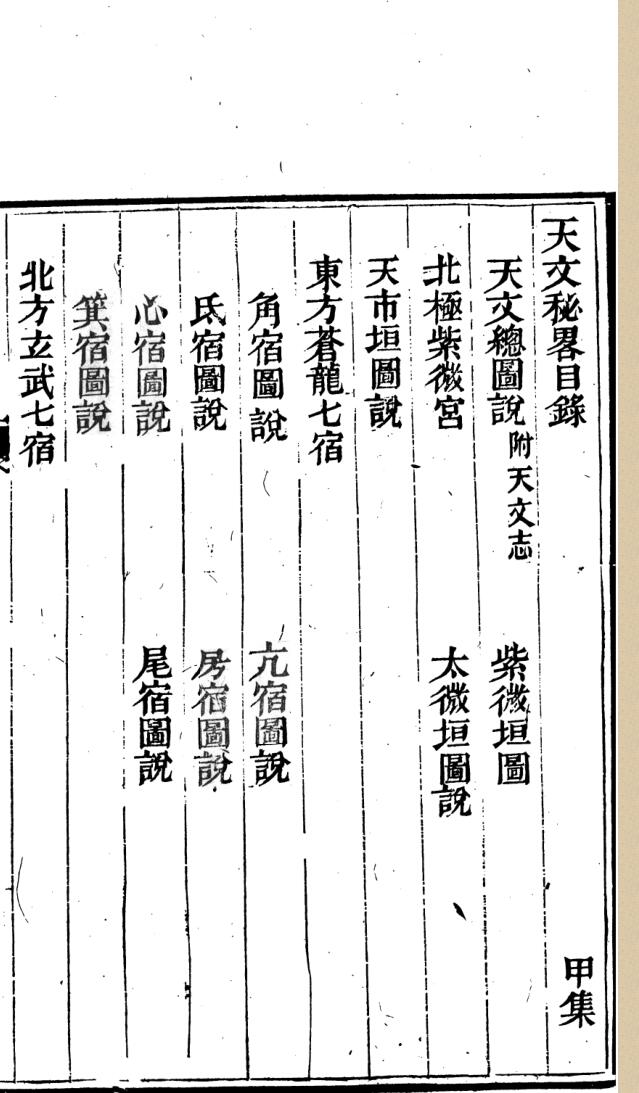 天文秘畧目錄　甲集
天文總圖說附天文志　紫微垣圖
北極紫微宮　太微垣圖說
天市垣圖說
東方蒼龍七宿
角宿圖說　亢宿圖說
氐宿圖說　房宿圖說
心宿圖說　尾宿圖說
箕宿圖說
北方玄武七宿